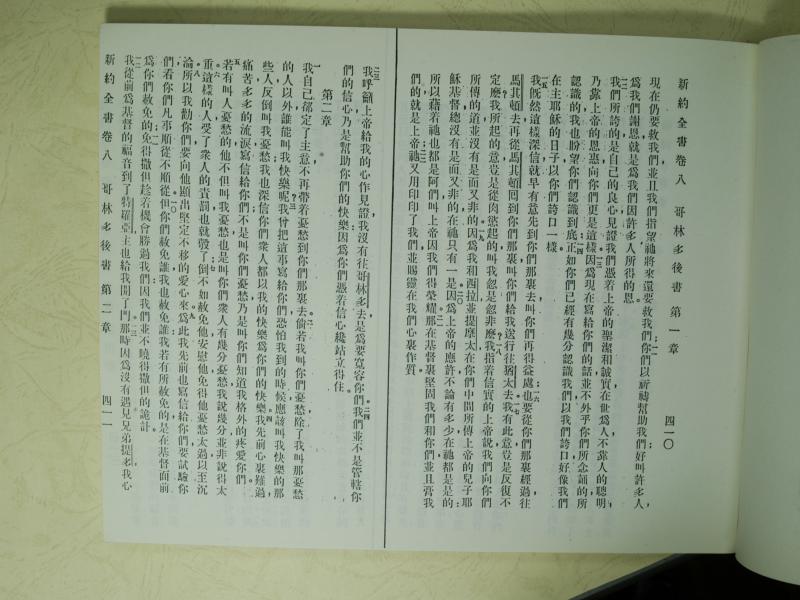 新約全書卷八 哥林多後書 第一章 四一〇
現在仍要救我們並且我們指望祂將來還要救我們你們以祈禱幫助我們好叫許多人
爲我們謝恩就是爲我們因許多人所得的恩
我們所誇的是自己的良心見證我們憑着上帝的聖潔和誠實在世爲人不靠人的聰明
乃靠上帝的恩惠向你們更是這樣因爲現在寫給你們的話並不外乎你們所念誦的所
認識的我也盼望你們認識到底正如你們已經有幾分認識我們以我們誇口好像我們
在主耶穌的日子以你們誇口一樣
我既然這樣深信就早有意先到你們那裏去叫你們再得益處也要從你們那裏經過往
馬其頓去再從馬其頓回到你們那裏叫你們給我送行往猶太去我有此意豈是反復不
定麼我所起的意豈是從肉慾起的叫我忽是忽非麼我指着信實的上帝說我們向你們
所傳的道並沒有是而又非的因爲我和西拉並提摩太在你們中間所傳上帝的兒子耶
穌基督總沒有是而又非的在祂只有一是因爲上帝的應許不論有多少在祂都是是的
所以藉着祂也都是阿們叫上帝因我們得榮耀那在基督裏堅固我們和你們並且膏我
們的就是上帝祂又用印印了我們並賜靈在我們心裏作質
我呼籲上帝給我的心作見證我沒有往哥林多去是爲要寬容你們我們並不是管轄你
們的信心乃是幫助你們的快樂因爲你們憑着信心纔站立得住
第二章
我自己都定了主意不再帶着憂愁到你們那裏去倘若我叫你們憂愁除了我叫那憂愁
的人以外誰能叫我快樂呢我曾把這事寫給你們恐怕我到的時候應該叫我快樂的那
些人反倒叫我憂愁我也深信你們衆人都以我的快樂爲你們的快樂我先前心裏難過
痛苦多多的流淚寫信給你們不是叫你們憂愁乃是叫你們知道我格外的疼愛你們
若有叫人憂愁的他不但叫我憂愁也是叫你們衆人有幾分憂愁我說幾分並非說得太
重這樣的人受了衆人的責罰也就彀了倒不如赦免他安慰他免得他憂愁太過以至沉
淪所以我勸你們要向他顯出堅定不移的愛心來爲此我先前也寫信給你們要試驗你
們看你們凡事順從不順從但你們赦免誰我也赦免誰我若有所赦免的是在基督面前
爲你們赦免的免得撒但趁着機會勝過我們因我們並不曉得撒但的詭計
我從前爲基督的福音到了特羅亞主也給我開了門那時因爲沒有遇見兄弟提多我心
新約全書卷八 哥林多後書 第二章 四一一